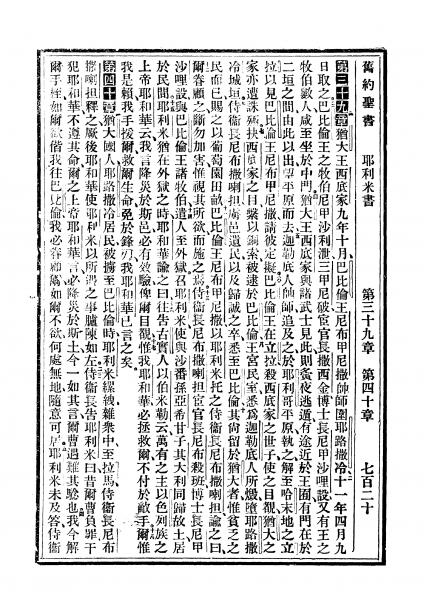 舊約聖書　耶利米書　第三十九章　第四十章　七百二十
第三十九章 猶大王西底家九年十月巴比倫王尼布甲尼撒帥師圍耶路撒冷十一年四月九
日取之巴比倫王之牧伯尼甲沙利泄三甲尼破宦官長撒西金博士長尼甲沙哩設又有王之
牧伯數人咸至坐於中門猶大王西底家與諸武士見此則夤夜逃遁有途近於王囿有門在於
二垣之間由此以出望平原而去迦勒底人帥師追及之於耶利哥平原執之解至哈末地之立
拉以見巴比倫王尼布甲尼撒請彼定擬巴比倫王在立拉殺西底家之世子使之目覩猶大之
家亦遭誅殛抉西底家之目繫以銅索被逮於巴比倫王宮民室悉爲迦勒底人所燬墮耶路撒
冷城垣侍衛長尼布撒喇担虜邑遺民以及歸誠之卒悉至巴比倫其尚留於猶大者惟貧乏之
民而已賜之以葡萄園田畝巴比倫王尼布甲尼撒以耶利米托之侍衛長尼布撒喇担諭之曰
爾眷顧之勿加害惟視其所欲而施之焉侍衛長尼布撒喇担宦官長尼布殺班博士長尼甲
沙哩設與巴比倫王諸牧伯遣人至外獄召耶利米使與沙番孫亞希甘子其大利同歸故土居
於民間耶利米猶在外獄之時耶和華諭之曰往告古實人以伯米勒云萬有之主以色列族之
上帝耶和華云我言降災於斯邑必有效驗俾爾目覩惟我耶和華必拯救爾不付於敵手爾惟
我是賴我手援爾救爾生命免於鋒刃我耶和華已言之矣
第四十章 猶大國人耶路撒冷居民被擄至巴比倫時耶利米縲絏雜衆中至拉馬侍衛長尼布
撒喇担釋之厥後耶和華使耶利米以所遇之事臚陳如左侍衛長告耶利米曰昔爾曹負罪干
犯耶和華不遵其命爾之上帝耶和華言必降災於斯土今一如其言爾曹遇難其驗也我今解
手桎如爾欲偕我往巴比倫我必眷顧爾如爾不欲何處無地隨意可居耶利米未及答侍衛